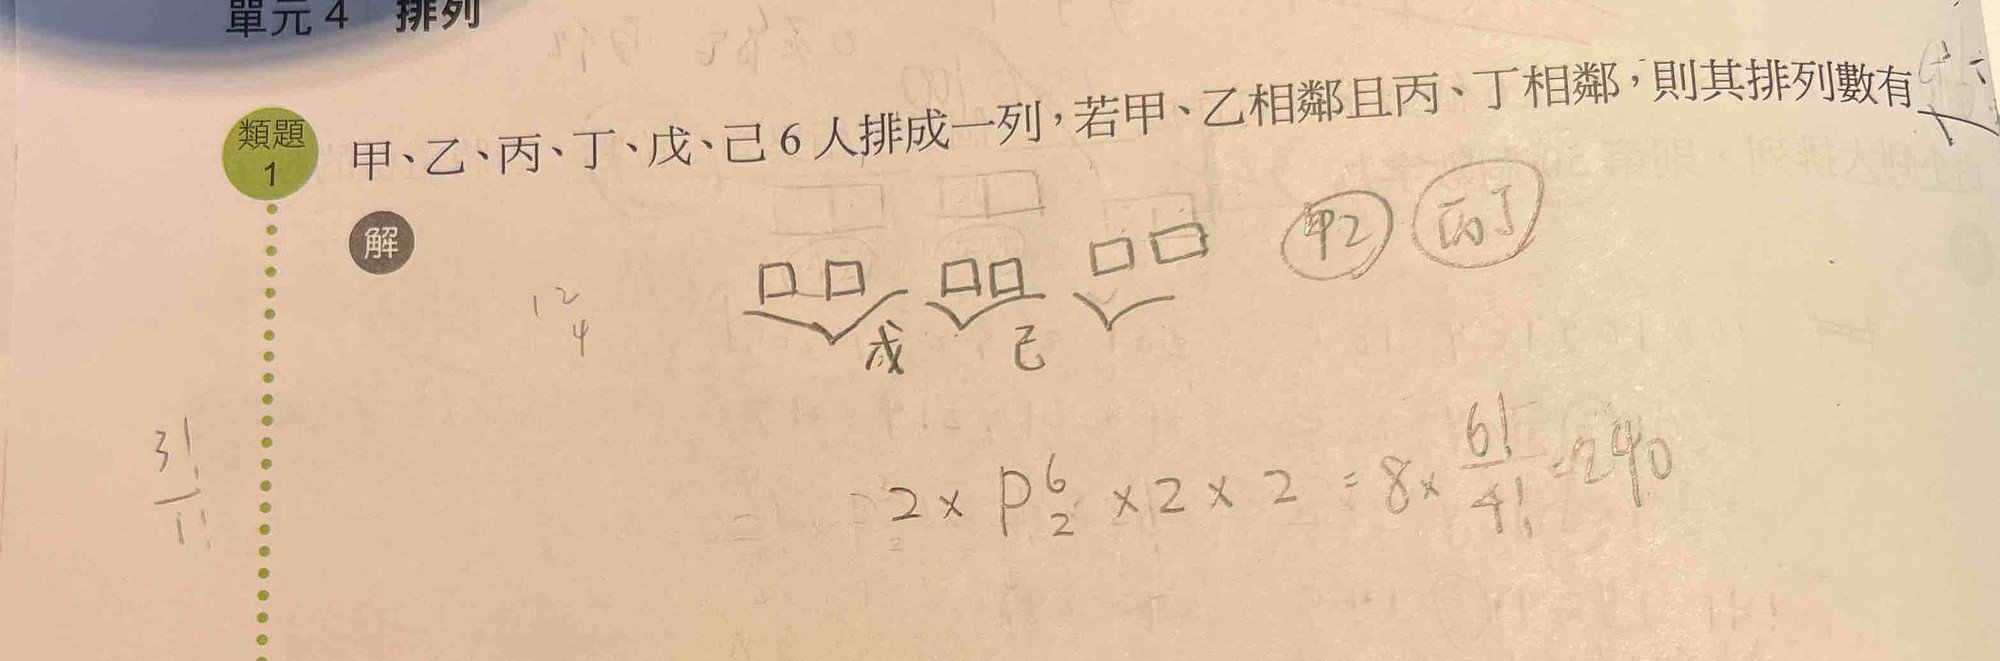 單元4 排列
類題
1
甲、乙、丙、丁、戊、己6人排成一列，若甲、乙相鄰且丙、丁相鄰，則其排列數有
解
甲乙 丙丁
12
4
戊 己
3!
1!
2×P⁶₂×2×2=8×6!/4!=240